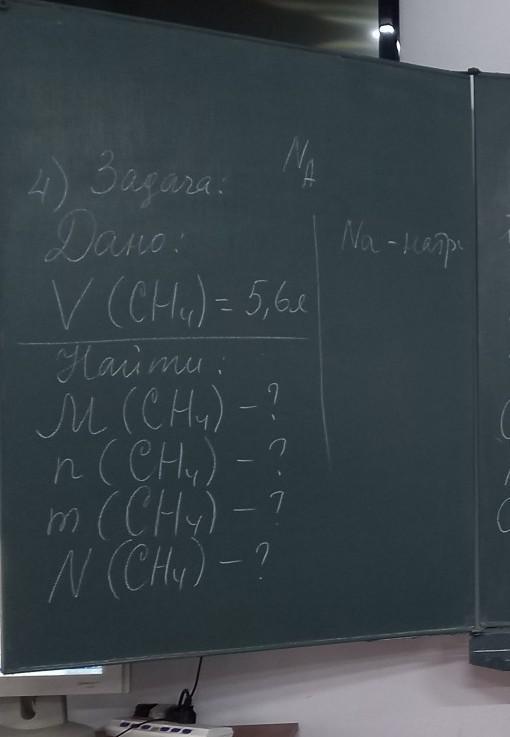 4) Задача:
N_A
Дано:
V (CH₄) = 5,6л
Найти:
M (CH₄) – ?
n (CH₄) – ?
m (CH₄) – ?
N (CH₄) – ?
Na - натри